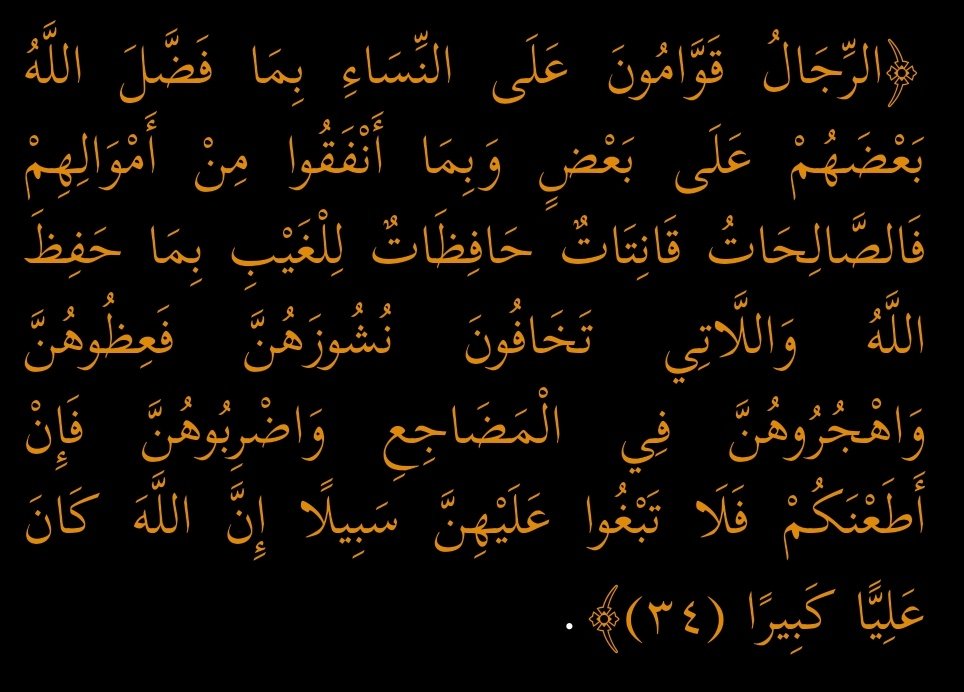 ﴿الرِّجَالُ قَوَّامُونَ عَلَى النِّسَاءِ بِمَا فَضَّلَ اللَّهُ
بَعْضَهُمْ عَلَى بَعْضٍ وَبِمَا أَنْفَقُوا مِنْ أَمْوَالِهِمْ
فَالصَّالِحَاتُ قَانِتَاتٌ حَافِظَاتٌ لِلْغَيْبِ بِمَا حَفِظَ
اللَّهُ وَاللَّاتِي تَخَافُونَ نُشُوزَهُنَّ فَعِظُوهُنَّ
وَاهْجُرُوهُنَّ فِي الْمَضَاجِعِ وَاضْرِبُوهُنَّ فَإِنْ
أَطَعْنَكُمْ فَلَا تَبْغُوا عَلَيْهِنَّ سَبِيلًا إِنَّ اللَّهَ كَانَ
عَلِيًّا كَبِيرًا (٣٤)﴾.